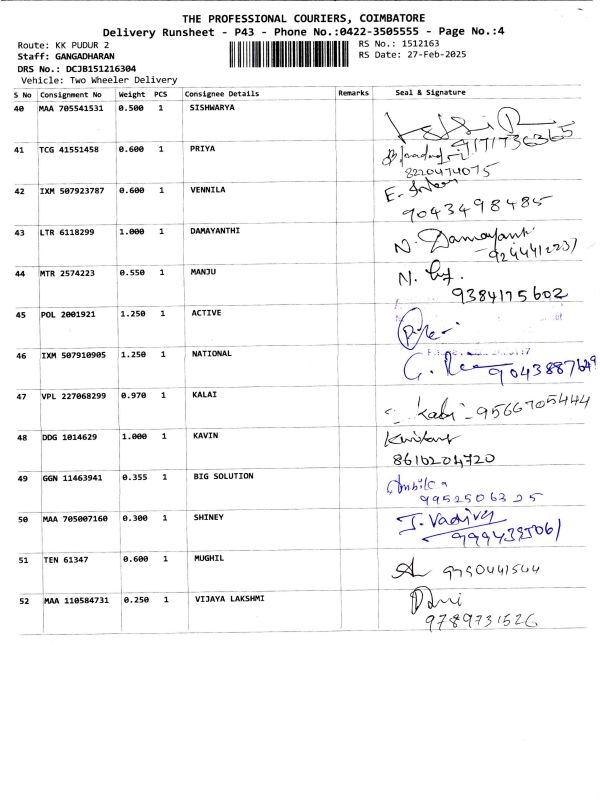 THE PROFESSIONAL COURIERS, COIMBATORE
Delivery Runsheet - P43 - Phone No.:0422-3505555 - Page No.:4
Route: KK PUDUR 2 RS No.: 1512163
Staff: GANGADHARAN RS Date: 27-Feb-2025
DRS No.: DCJB151216304
Vehicle: Two Wheeler Delivery
S No Consignment No Weight PCS Consignee Details Remarks Seal & Signature
40 MAA 705541531 0.500 1 SISHWARYA
9171736365
41 TCG 41551458 0.600 1 PRIYA
8220474075
42 IXM 507923787 0.600 1 VENNILA E.
9043498485
43 LTR 6118299 1.000 1 DAMAYANTHI N. Damayanthi
9244412237
44 MTR 2574223 0.550 1 MANJU N.
9384175602
45 POL 2001921 1.250 1 ACTIVE
46 IXM 507910905 1.250 1 NATIONAL G. 9043887649
47 VPL 227068299 0.970 1 KALAI Kalai - 9566705444
48 DDG 1014629 1.000 1 KAVIN
8610204720
49 GGN 11463941 0.355 1 BIG SOLUTION Ambika
9952506325
50 MAA 705007160 0.300 1 SHINEY J. Vadivu
51 TEN 61347 0.600 1 MUGHIL 9790441544
52 MAA 110584731 0.250 1 VIJAYA LAKSHMI
9789731526